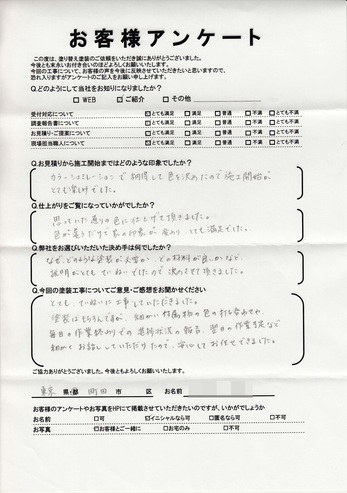 お客様アンケート
この度は、塗り替え塗装のご依頼をいただき誠にありがとうございました。
今後とも末永いお付き合いのほどよろしくお願いいたします。
今回の工事について、お客様の声を今後に反映させていただきたいと思いますので、
恐れ入りますがアンケートのご記入をお願い申し上げます。
Q.どのようにして当社をお知りになりましたか?
□ WEB ☑ ご紹介 □ その他
受付対応について ☑とても満足 □満足 □普通 □不満 □とても不満
調査報告書について ☑とても満足 □満足 □普通 □不満 □とても不満
お見積り・ご提案について ☑とても満足 □満足 □普通 □不満 □とても不満
現場担当職人について ☑とても満足 □満足 □普通 □不満 □とても不満
Q.お見積りから施工開始まではどのような印象でしたか?
カラーシュミレーションで納得して色を決めたので施工開始が
とても楽しみでした。
Q.仕上がりをご覧になっていかがでしたか?
思っていた通りの色に仕上げて頂きました。
色が違うだけで家の印象が変わり とても満足でした。
Q.弊社をお選びいただいた決め手は何でしたか?
なぜ、どのような塗装が必要か、どの材料が良いかなど、
説明がとてもていねいでしたので決めさせて頂きました。
Q.今回の塗装工事についてご意見・ご感想をお聞かせください
とても、ていねいに工事していただきました。
塗装はもちろんですが、細かい付属物の色の打ち合わせや、
毎日の作業終わりでの進捗状況の報告、翌日の作業予定など
細かくお話ししていただけたので、安心してお任せできました。
ご協力ありがとうございました。今後ともよろしくお願いいたします。
東京 県・都 町田 市 区 お名前
お客様のアンケートやお写真をHPにて掲載させていただきたいのですが、いかがでしょうか
お名前 □可 ☑イニシャルなら可 □匿名なら可 □不可
お写真 □お客様とご一緒に □お宅のみ □不可